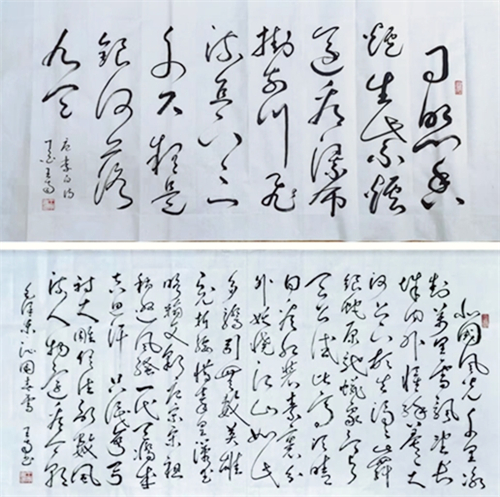 日照香
爐生紫煙
遥看瀑布
掛前川飞
流直下三
千尺疑是
銀河落
九天
唐李白诗
北国风光千里冰
封万里雪飘望长
城内外惟余莽莽大
河上下顿失滔滔山舞
银蛇原驰蜡象欲与
天公试比高须晴
日看红装素裹分
外妖娆江山如此
多娇引无数英雄
竞折腰惜秦皇汉武
略输文采唐宗宋祖
稍逊风骚一代天骄成
吉思汗只识弯弓
射大雕俱往矣数风
流人物还看今朝
毛泽东沁园春雪